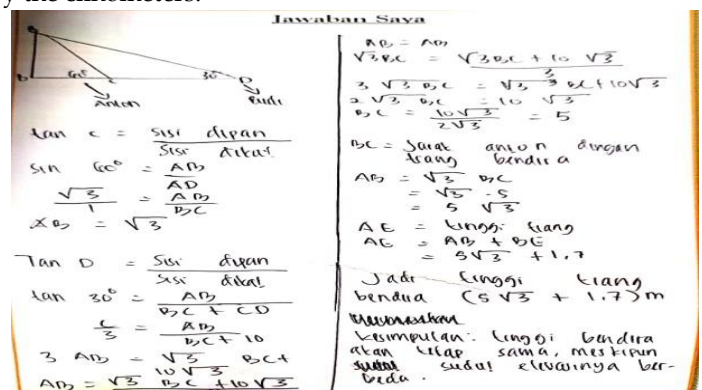 y the clinometers.
Jawaban Saya
A
B 60° C 30° D
Anton Rudi
tan C = sisi depan
sisi dekat
sin 60° = AB
AD
√3 = AB
1 BC
AB = √3
Tan D = sisi depan
sisi dekat
tan 30° = AB
BC + CD
= AB
3 BC + 10
3 AB = √3 BC +
10 √3
AB = √3 BC + 10 √3
AB = AB
√3 BC = √3 BC + 10 √3
3
3 √3 BC = √3 BC + 10√3
2 √3 BC = 10 √3
BC = 10√3 = 5
2√3
BC = Jarak anton dengan
tiang bendera
AB = √3 BC
= √3 . 5
= 5 √3
AE = tinggi tiang
AE = AB + BE
= 5√3 + 1,7
Jadi tinggi tiang
bendera (5√3 + 1.7) m
Kesimpulan: tinggi bendera
akan tetap sama, meskipun
sudut elevasinya ber-
beda.